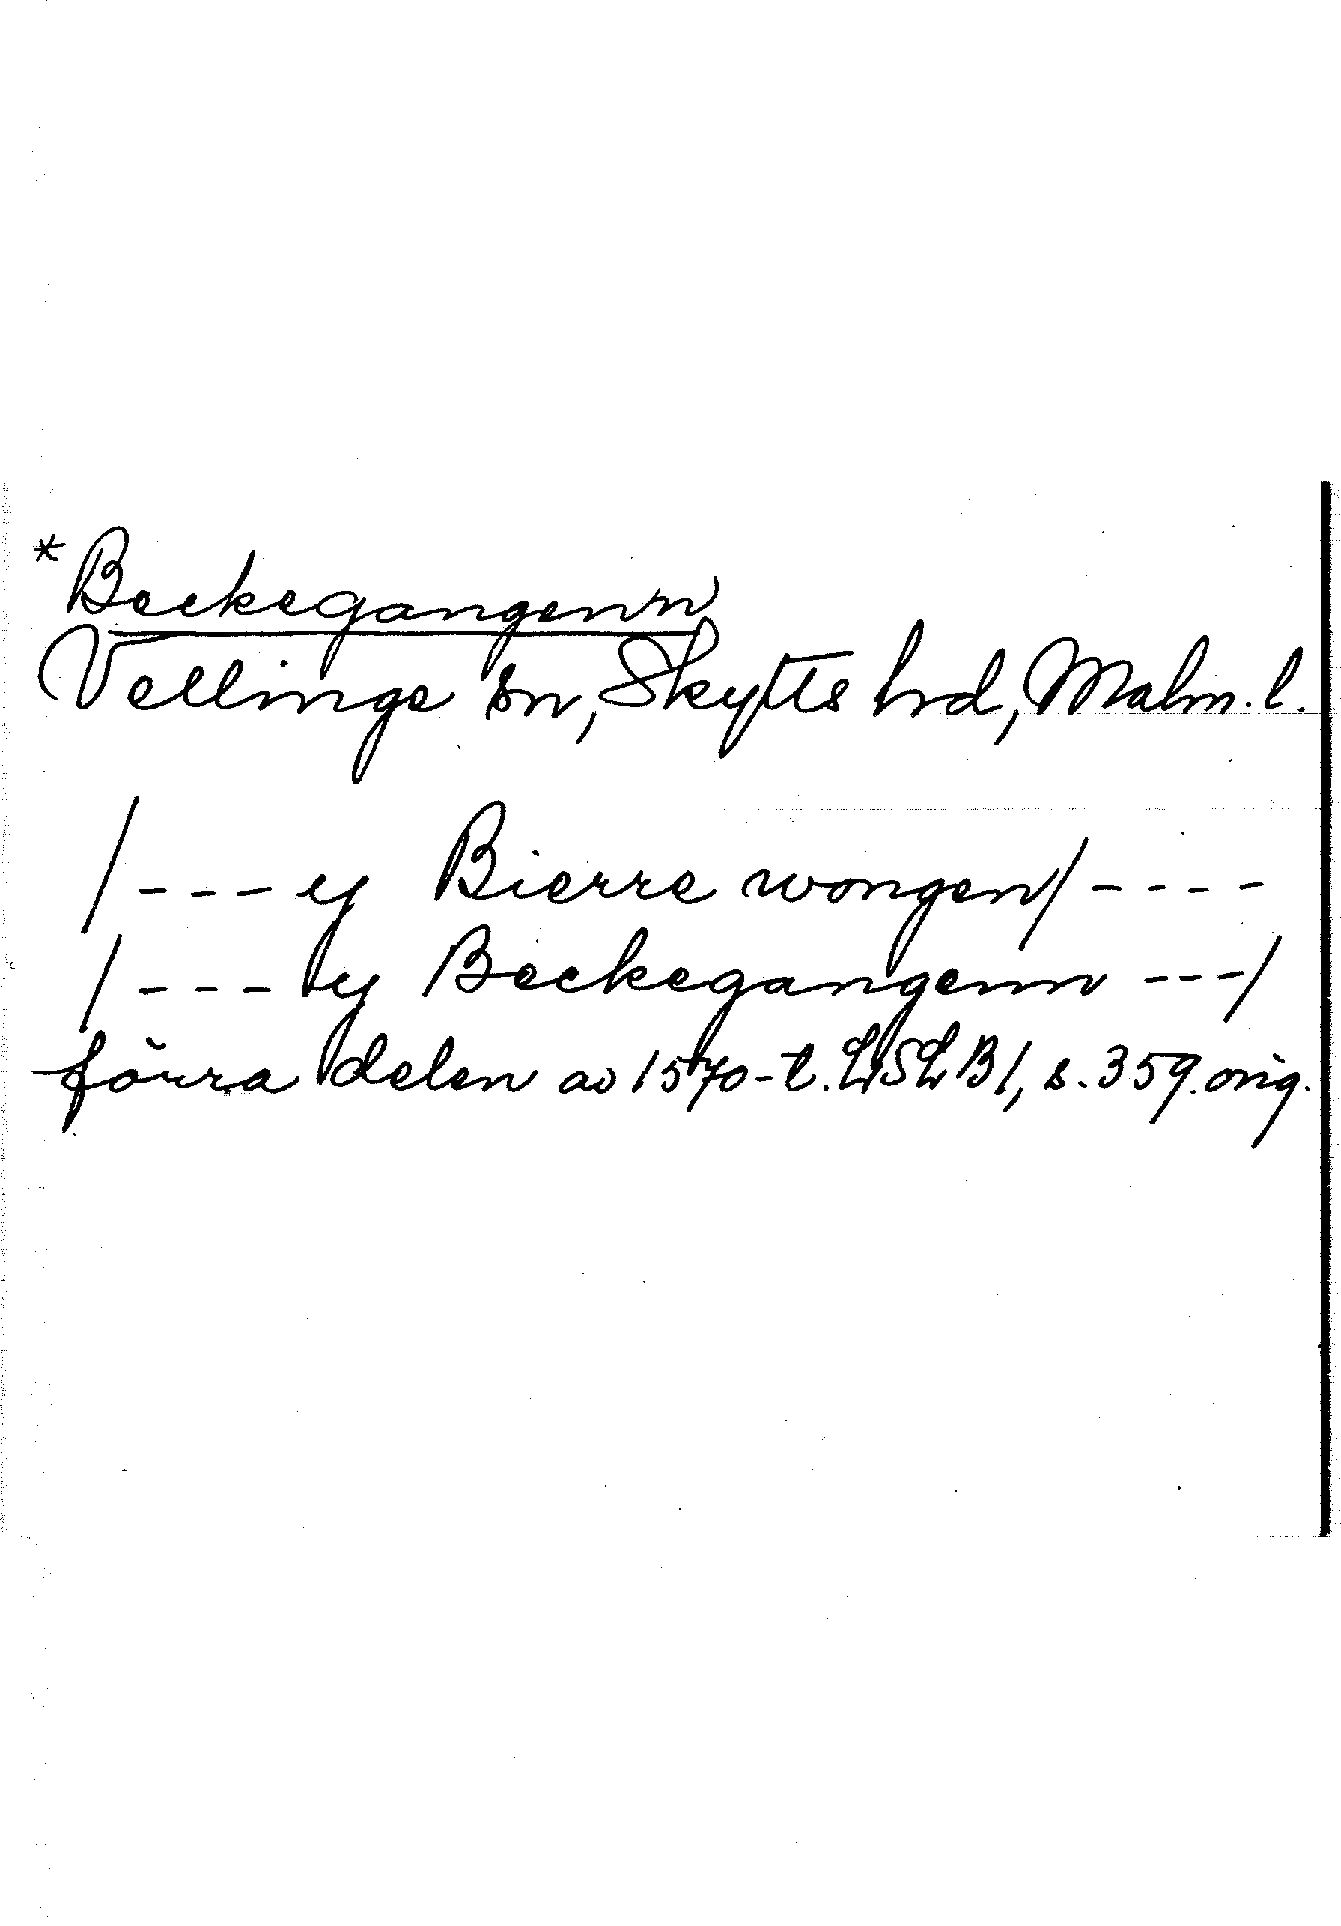 *Beckegangenn
Vellinge sn, Skytts hd, Malm. l.
/--- ey Bierre wongen/ ----
/--- ey Beckegangenn ---/
förra delen av 1570-t. LSLB1, s. 359. orig.